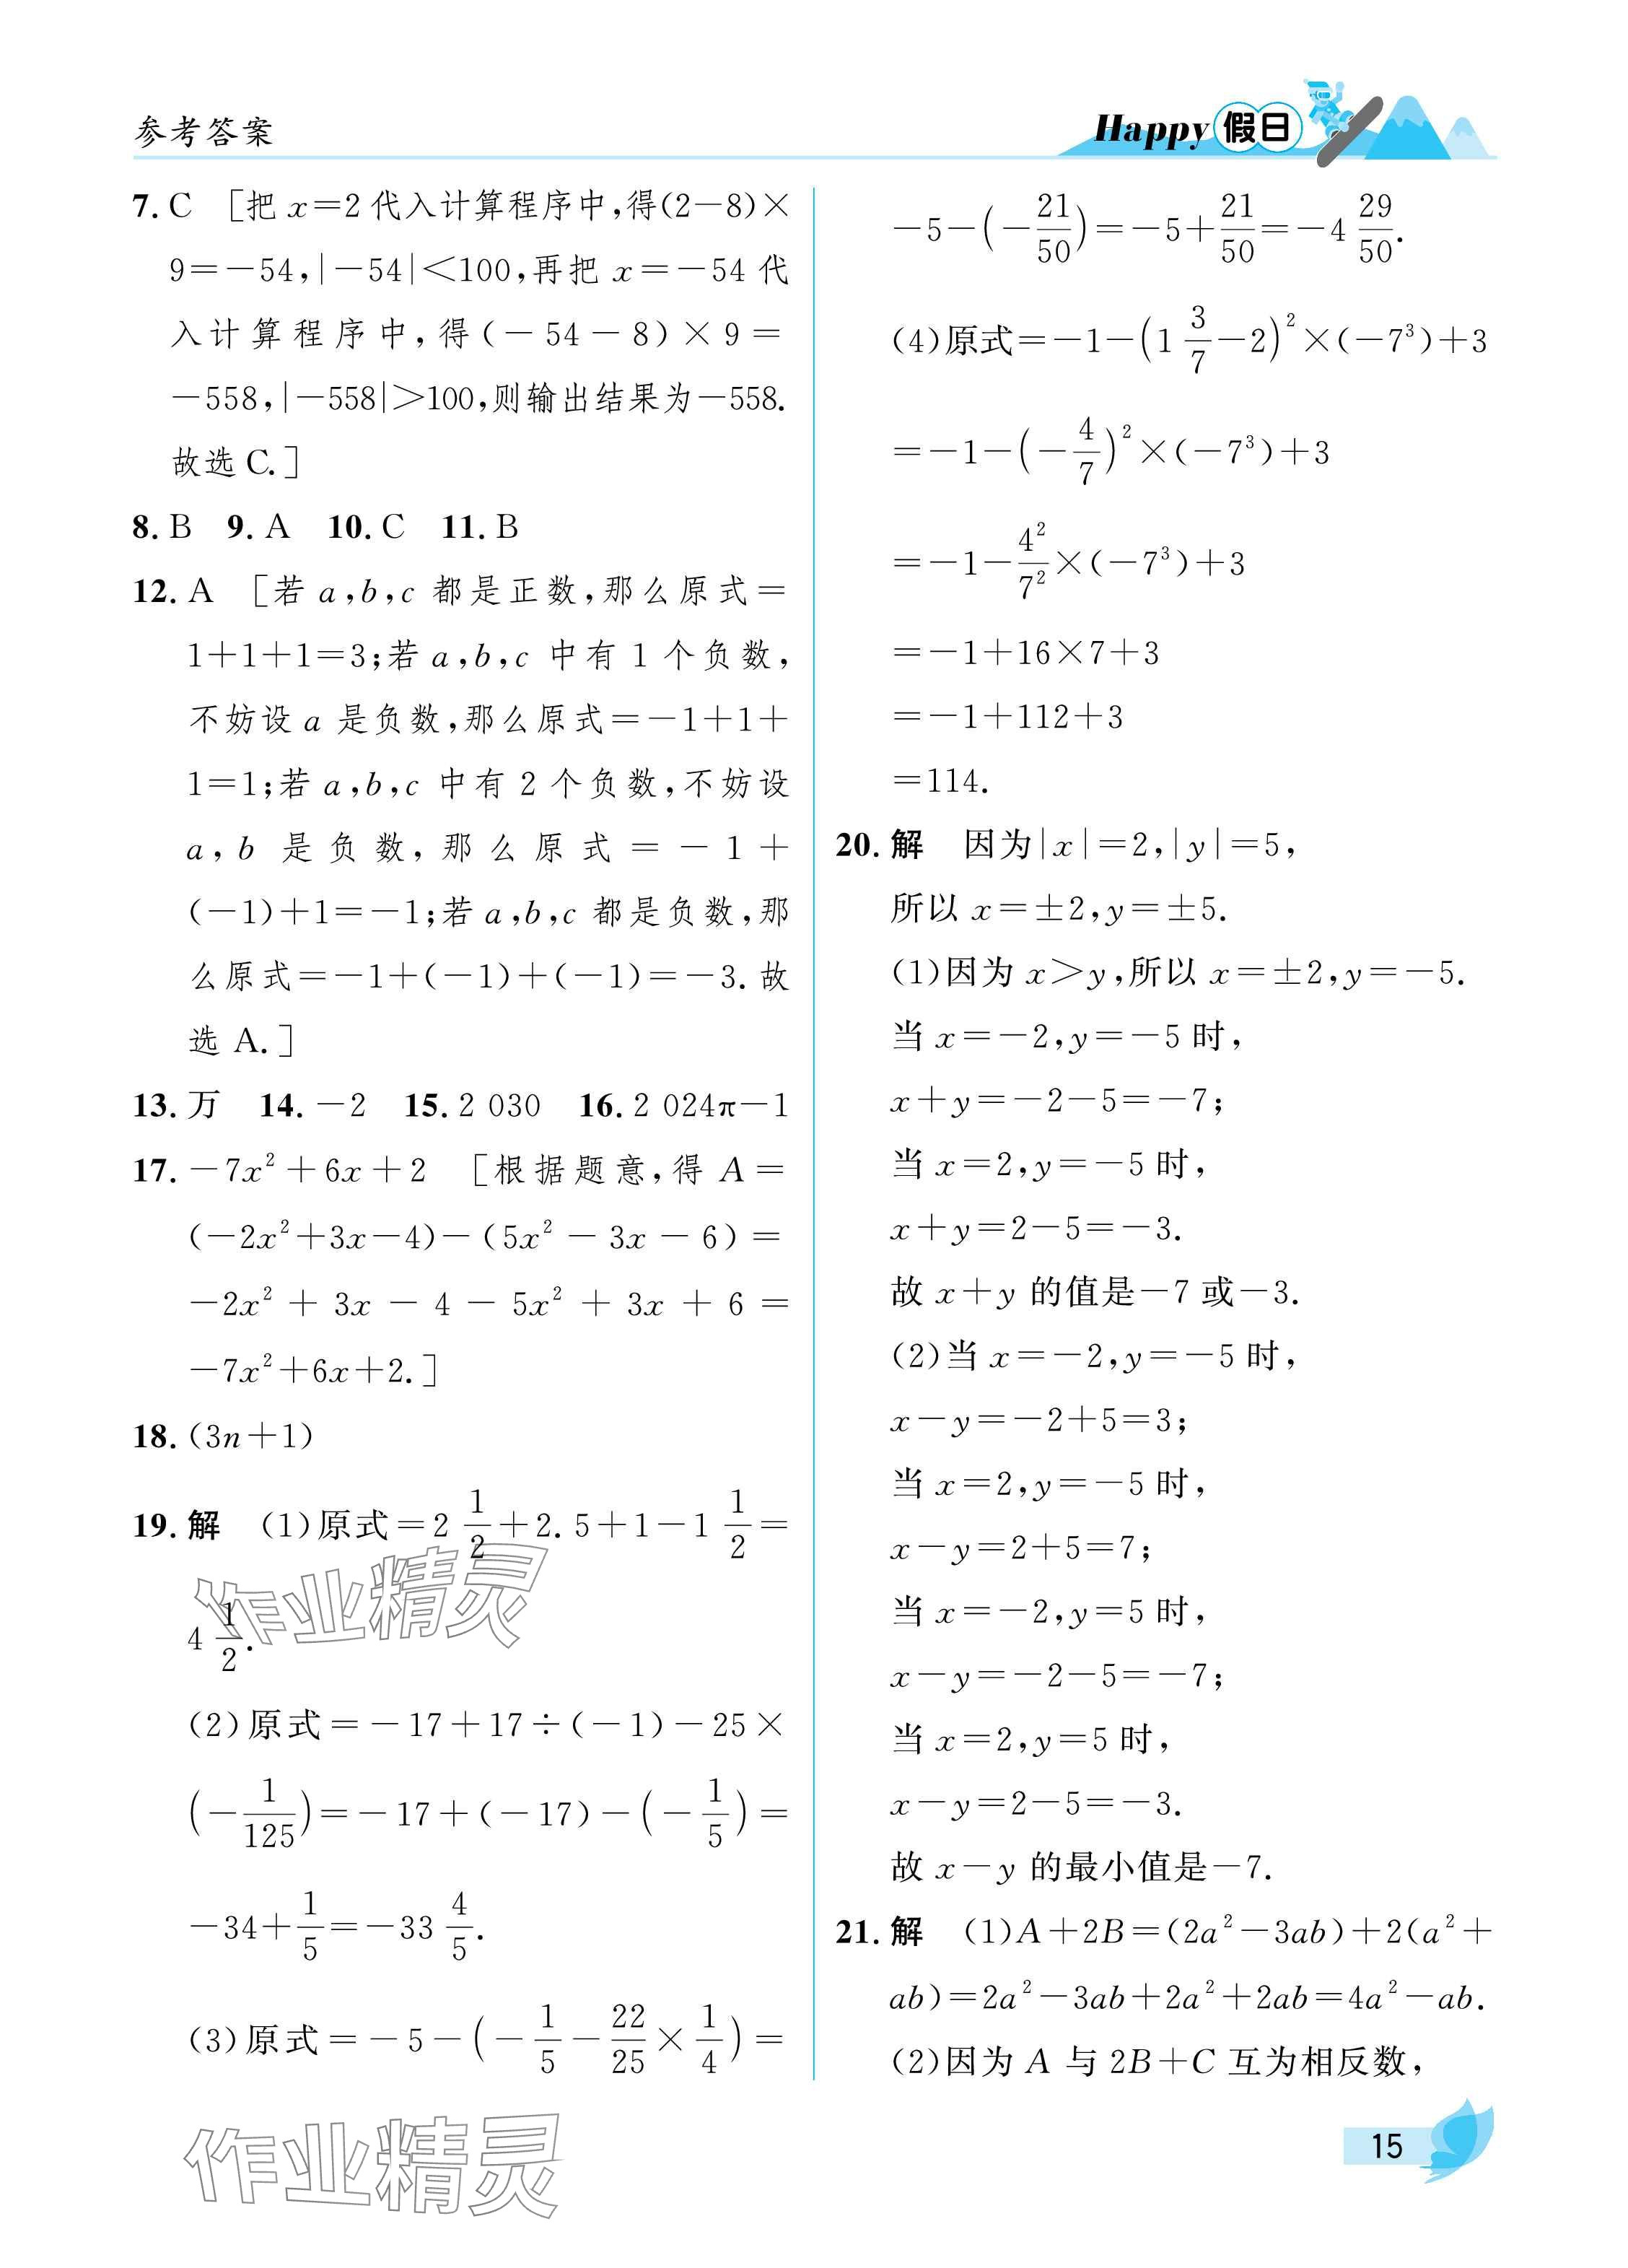 参考答案
Happy假日
7. C　[把 x=2 代入计算程序中,得(2-8)×
9=-54,|-54|<100,再把 x=-54 代
入计算程序中,得(-54-8)×9=
-558,|-558|>100,则输出结果为-558.
故选 C.]
8. B　9. A　10. C　11. B
12. A　[若 a,b,c 都是正数,那么原式=
1+1+1=3;若 a,b,c 中有 1 个负数,
不妨设 a 是负数,那么原式=-1+1+
1=1;若 a,b,c 中有 2 个负数,不妨设
a,b 是负数,那么原式=-1+
(-1)+1=-1;若 a,b,c 都是负数,那
么原式=-1+(-1)+(-1)=-3. 故
选 A.]
13. 万　14. -2　15. 2 030　16. 2 024π-1
17. -7x²+6x+2　[根据题意,得 A=
(-2x²+3x-4)-(5x²-3x-6)=
-2x²+3x-4-5x²+3x+6=
-7x²+6x+2.]
18. (3n+1)
19. 解　(1)原式=2 1/2+2.5+1-1 1/2=
4 1/2.
(2)原式=-17+17÷(-1)-25×
(-1/125)=-17+(-17)-(-1/5)=
-34+1/5=-33 4/5.
(3)原式=-5-(-1/5-22/25×1/4)=
-5-(-21/50)=-5+21/50=-4 29/50.
(4)原式=-1-(1 3/7-2)²×(-7³)+3
=-1-(-4/7)²×(-7³)+3
=-1-4²/7²×(-7³)+3
=-1+16×7+3
=-1+112+3
=114.
20. 解　因为|x|=2,|y|=5,
所以 x=±2,y=±5.
(1)因为 x>y,所以 x=±2,y=-5.
当 x=-2,y=-5 时,
x+y=-2-5=-7;
当 x=2,y=-5 时,
x+y=2-5=-3.
故 x+y 的值是-7 或-3.
(2)当 x=-2,y=-5 时,
x-y=-2+5=3;
当 x=2,y=-5 时,
x-y=2+5=7;
当 x=-2,y=5 时,
x-y=-2-5=-7;
当 x=2,y=5 时,
x-y=2-5=-3.
故 x-y 的最小值是-7.
21. 解　(1)A+2B=(2a²-3ab)+2(a²+
ab)=2a²-3ab+2a²+2ab=4a²-ab.
(2)因为 A 与 2B+C 互为相反数,
作业精灵
作业精灵
15